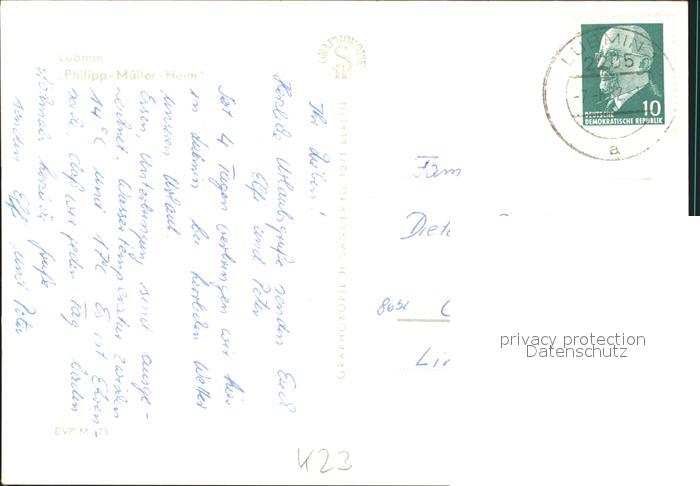 Lubmin
"Philipp-Müller-Heim"
Ihr Lieben!
Herzliche Urlaubsgrüße senden Euch
Elfi und Peter
Seit 4 Tagen verbringen wir hier
in Lubmin bei herrlichem Wetter
unseren Urlaub.
Essen, Unterbringung sind ausge-
zeichnet. Wassertemperatur zwischen
14°C und 17°C Es ist Ehren-
sache, daß wir jeden Tag baden
Nochmals herzliche Grüße
senden Elfi und Peter
EVP M
GRAPHOKOPIE
GRAPHOKOPIE H. SANDER KG., 1071 BERLIN
LUBMIN
2205
a
10
DEUTSCHE
DEMOKRATISCHE REPUBLIK
Fam
Diet
privacy protection
Datenschutz
K23